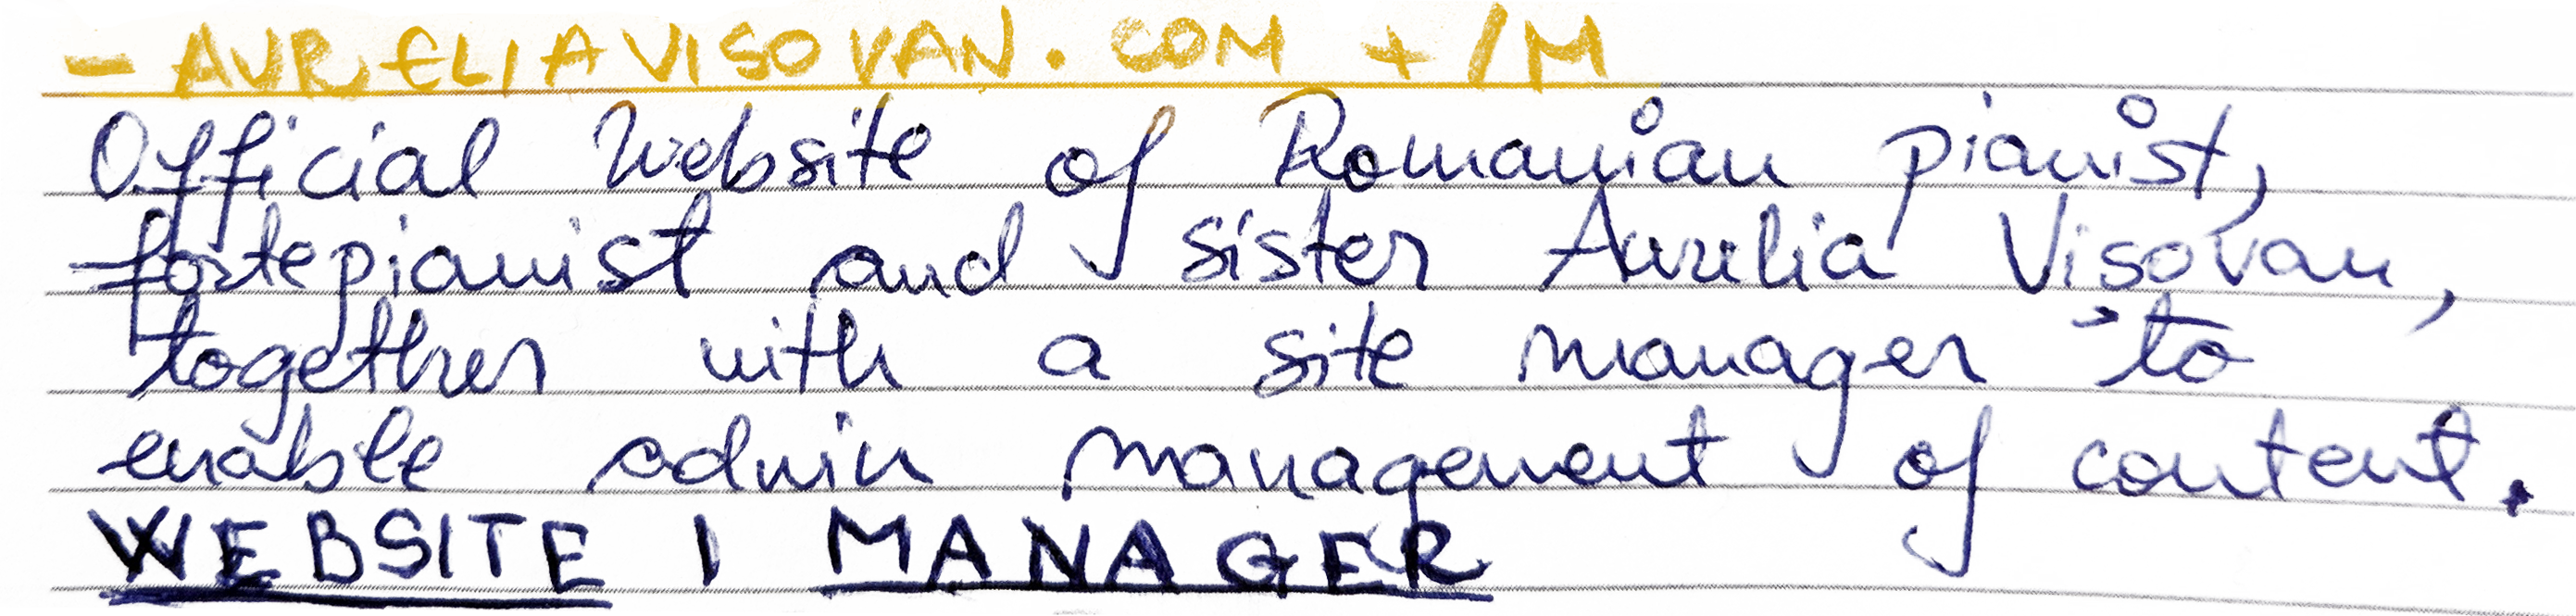 - AURELIAVISOVAN.COM + /M
Official Website of Romanian pianist,
fortepianist and sister Aurelia Visovan,
together with a site manager to
enable admin management of content.
WEBSITE | MANAGER